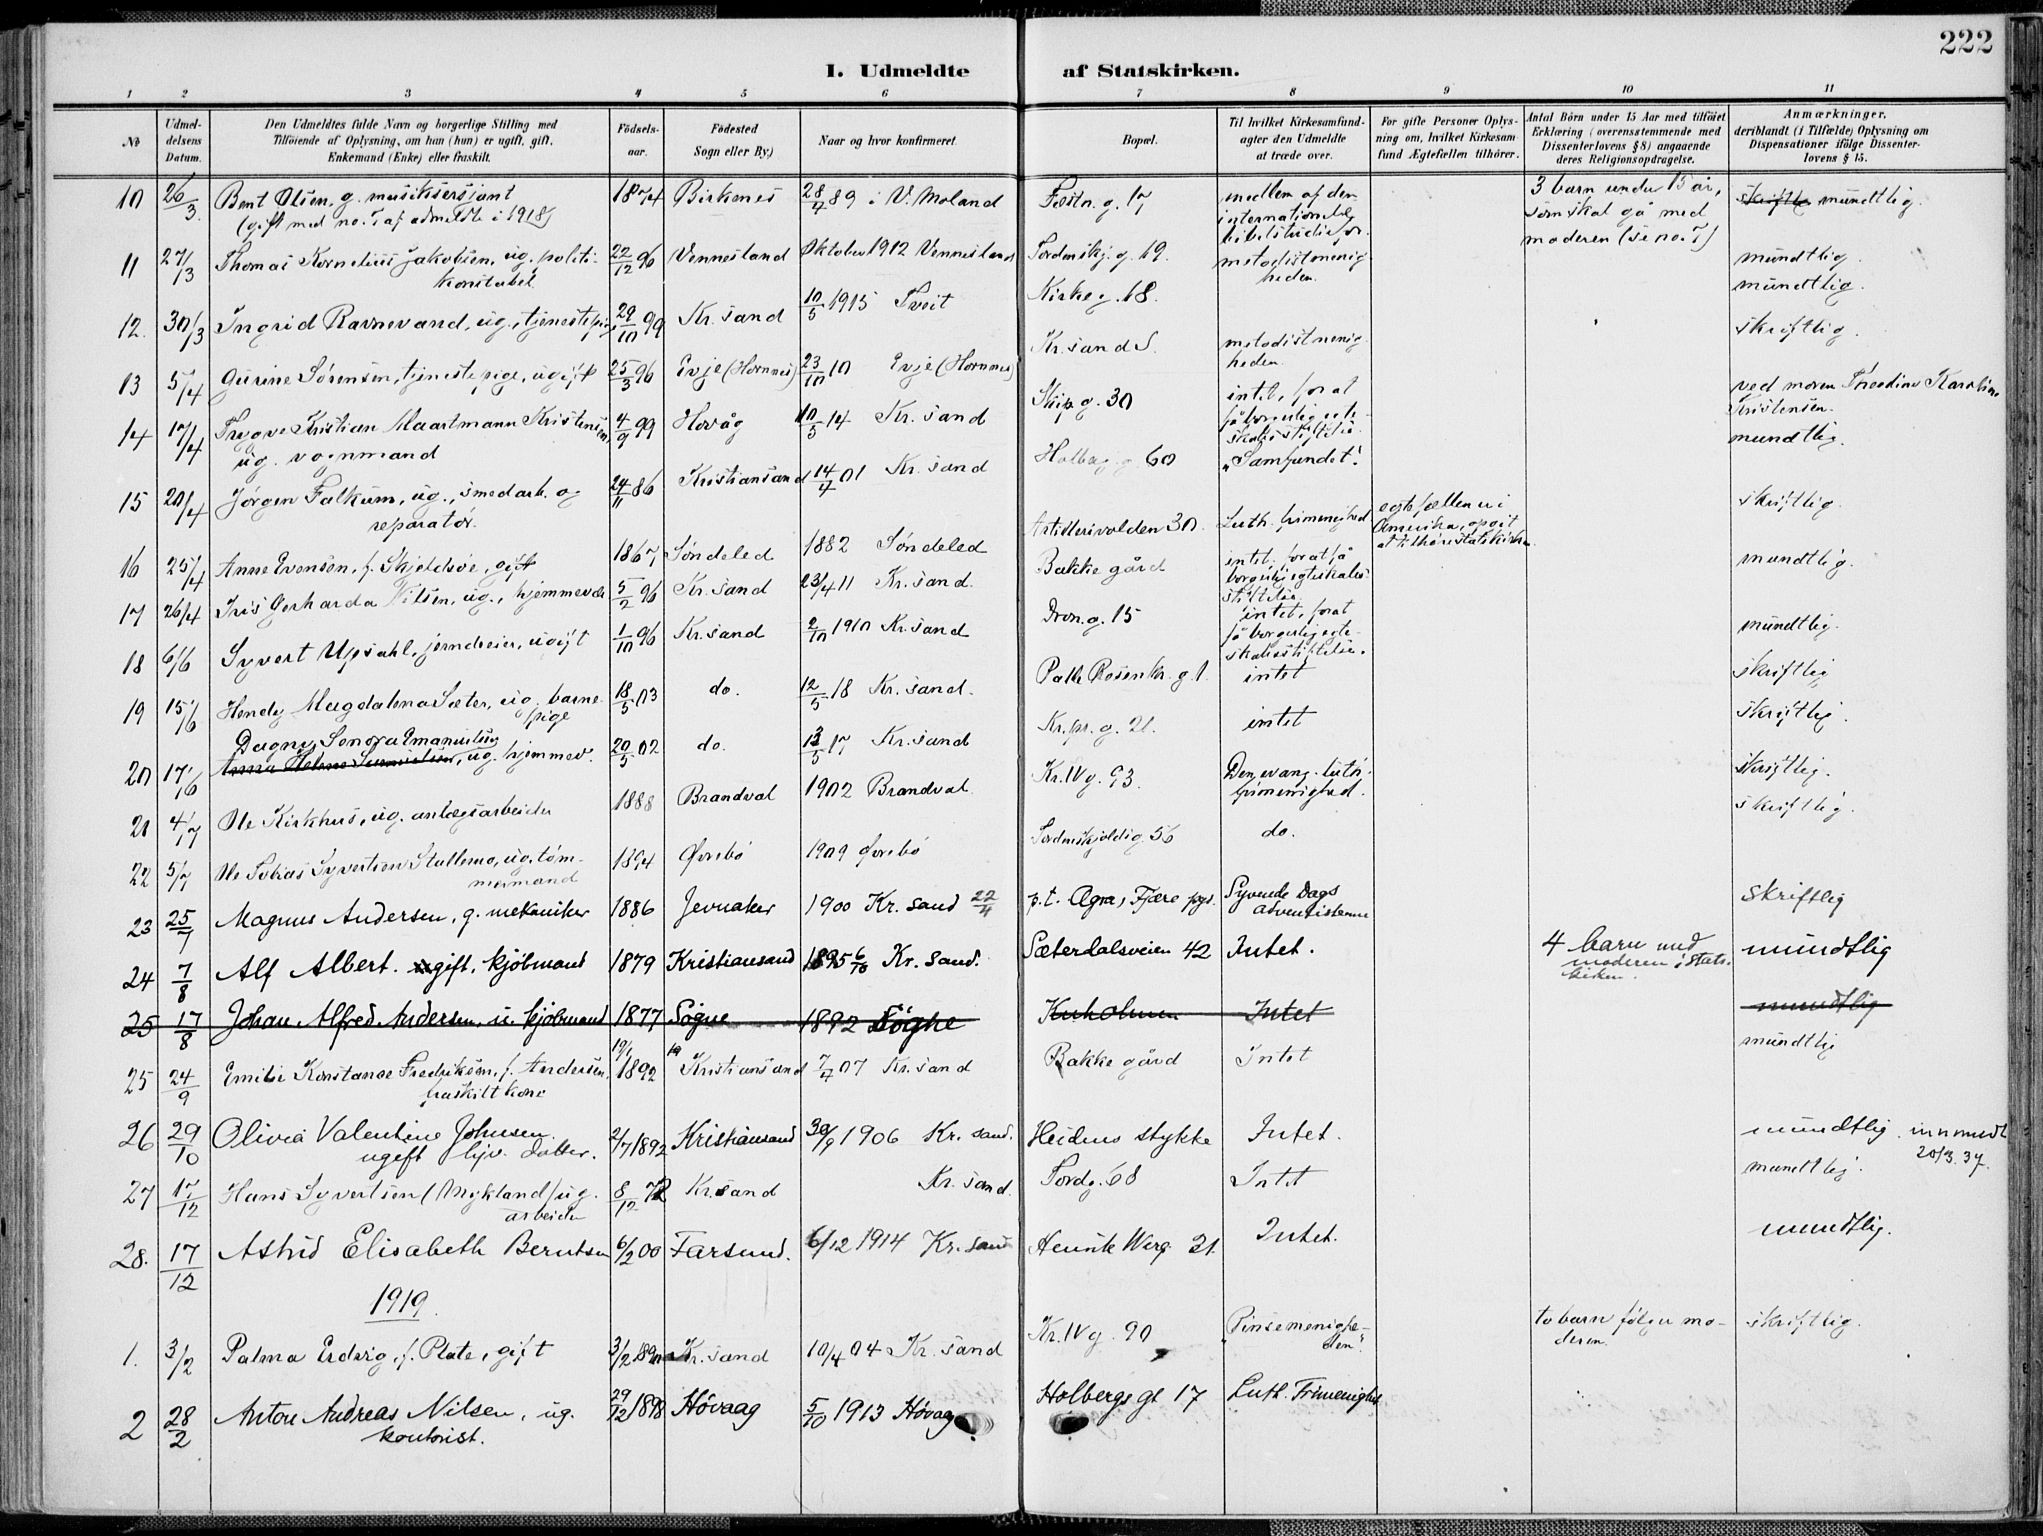 222
I. Udmeldte af Statskirken.
1 2 3 4 5 6 7 8 9 10 11
No
Udmel-
delsens
Datum.
Den Udmeldtes fulde Navn og borgerlige Stilling med
Tilføiende af Oplysning, om han (hun) er ugift, gift,
Enkemand (Enke) eller fraskilt.
Födsels-
aar.
Födested
Sogn eller By.)
Naar og hvor konfirmeret
Bopæl.
Til hvilket Kirkesamfund-
agter den Udmeldte
at træde over.
For gifte Personer Oplys-
ning om, hvilket Kirkesam
fund Ægtefællen tilhörer.
Antal Börn under 15 Aar med tilföiet
Erklæring (overensstemmende med
Dissenterlovens § 8) angaaende
deres Religionsopdragelse.
Anmærkninger,
deriblandt (i Tilfælde) Oplysning om
Dispensationer ifölge Dissenter-
lovens § 15.
10 26/3 Bent Olsen, g. musiksersjant 1874 Birkenes 28/7 89 i V. Moland Festn. g. 17 medlem af den 3 barn under 15 år, skriftlig mundtlig.
(gift med no. 7 af udmeldte i 1918) internationale som skal gå med
bibelstudiefor. moderen (se no. 7)
11 27/3 Thomas Kornelius Jakobsen, ug. politi- 22/12 96 Vennesland Oktober 1912 Vennesland Tordenskj. g. 19. metodistmenig- mundtlig.
konstabel heden.
12. 30/3 Ingrid Ravnevand, ug., tjenestepige 29/10 99 Kr. sand 10/5 1915 Tveit Kirkeg. 18. mundtlig.
13 5/4 Gurine Sørensen, tjenestepige, ugift 25/3 96 Evje (Hornnes) 23/10 10 Evje (Hornnes) Kr. sand S. metodistmenig skriftlig.
heden.
14 17/4 Trygve Kristian Maartmann Kristensen, 4/9 99 Hovåg 10/5 14 Kr. sand Skip. g. 30 intet, for at ved moren Theodine Karoline
ug. vognmand få borgerlig egte- Kristensen.
skabsstiftelse.
15 20/4 Jørgen Falkum, ug., smedarb. og 24/11 86 Kristiansand 14/7 01 Kr. sand Holbeg. g. 60 "Samfundet". mundtlig.
reparatør.
16 25/4 Anne Evensen, f. Skjeldsøe, gift 1867 Søndeled 1882 Søndeled Artillerivolden 30. Luth. frimenighed egtefællen er i skriftlig.
Amerika, opgit
at tilhøre statskirken
17 26/4 Iris Gerharda Nilsen, ug., hjemmevde 5/2 96 Kr. sand 23/4 11 Kr. sand. Bakke gård intet, for at få mundtlig.
borgerlig egteskabs-
stiftelse
18 6/6 Syvert Upsahl, jerndreier, ugift 1/10 96 Kr. sand 2/10 1910 Kr. sand Dron. g. 15 intet, for at mundtlig.
få borgerlig egte-
skabsstiftelse.
19 15/6 Hendy Magdalena Sæter, ug. barne- 18/5 03 do. 12/5 18 Kr. sand. Palle Rosenkr. g. 1. intet skriftlig
pige
Dagny Sonora Emanuelsen
20 17/6 ug. hjemmev. 20/5 02 do. 13/5 17 Kr. sand Kr. pr. g. 21. intet skriftlig.
21 4/7 Ole Kirkhus, ug. anlegsarbeider 1888 Brandval 1902 Brandval Kr. IV g. 93. Den evang. luth. skriftlig.
frimenighed.
22 5/7 Ole Tobias Syvertsen Stallemo, ug. tøm- 1894 Øvrebø 1909 Øvrebø Tordenskjoldsg. 56 do. skriftlig.
mermand
23 25/7 Magnus Andersen, g. mekaniker 1886 Jevnaker 1900 Kr. sand 22/4 p.t. Ægra, Fjære pgd. Syvende Dags skriftlig
adventisterne
24 7/8 Alf Albert. gift, kjöbmand 1879 Kristiansand 1895 6/10 Kr. sand. Sæterdalsveien 42 Intet. 4 barn med mundtlig
moderen i stats-
kirken.
25 17/8 Johan Alfred Andersen, u. kjöbmand 1877 Sögne 1892 Sögne Kuholmen Intet mundtlig
25 24/9 Emilie Konstance Fredriksen, f. Andersen, 19/1 1892 Kristiansand 7/4 07 Kr. sand Bakke gård Intet mundtlig
fraskilt kone
26 29/10 Olivia Valentine Johnsen 2/7 1892 Kristiansand 30/9 1906 Kr. sand. Heidens stykke Intet. mundtlig. innmeldt
ugift hjv. datter. 20/3. 37.
27 17/12 Hans Syvertsen (Mykland) ug. 8/12 72 Kr. sand Kr. sand. Tordg. 68 Intet mundtlig.
arbeider
28. 17/12 Astrid Elisabeth Berntsen 6/2 00 Farsund. 6/12 1914 Kr. sand Henrik Werg. 31 Intet. mundtlig.
1919
1. 3/2 Palma Erdvig, f. Plate, gift 3/2 1890 Kr. sand 10/4 04 Kr. sand Kr. IV g. 90 "Pinsemenighe- to barn følger mo- skriftlig.
den". deren.
2 28/2 Anton Andreas Nilsen, ug. 29/12 1898 Hövaag 5/10 1913 Hövaag Holbergs gt 17 Luth. Frimenighet
kontorist.